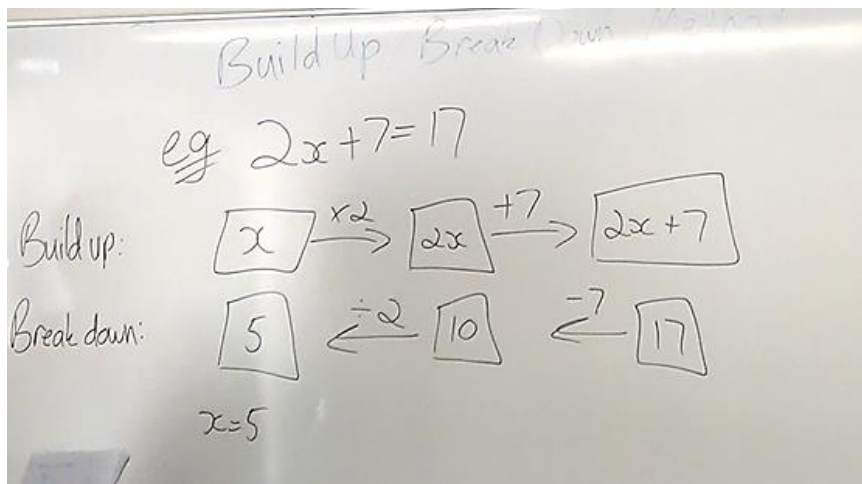 Build Up Break Down Method
eg 2x+7=17
Build up: x ×2 2x +7 2x+7
Break down: 5 ÷2 10 -7 17
x=5